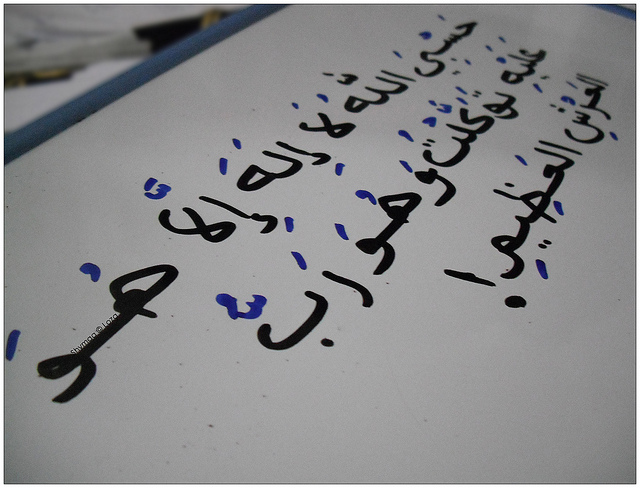 حَسْبِيَ اللَّهُ لَا إِلَهَ إِلَّا هُوَ
عَلَيْهِ تَوَكَّلْتُ وَهُوَ رَبُّ
العَرْشِ العَظِيمِ!